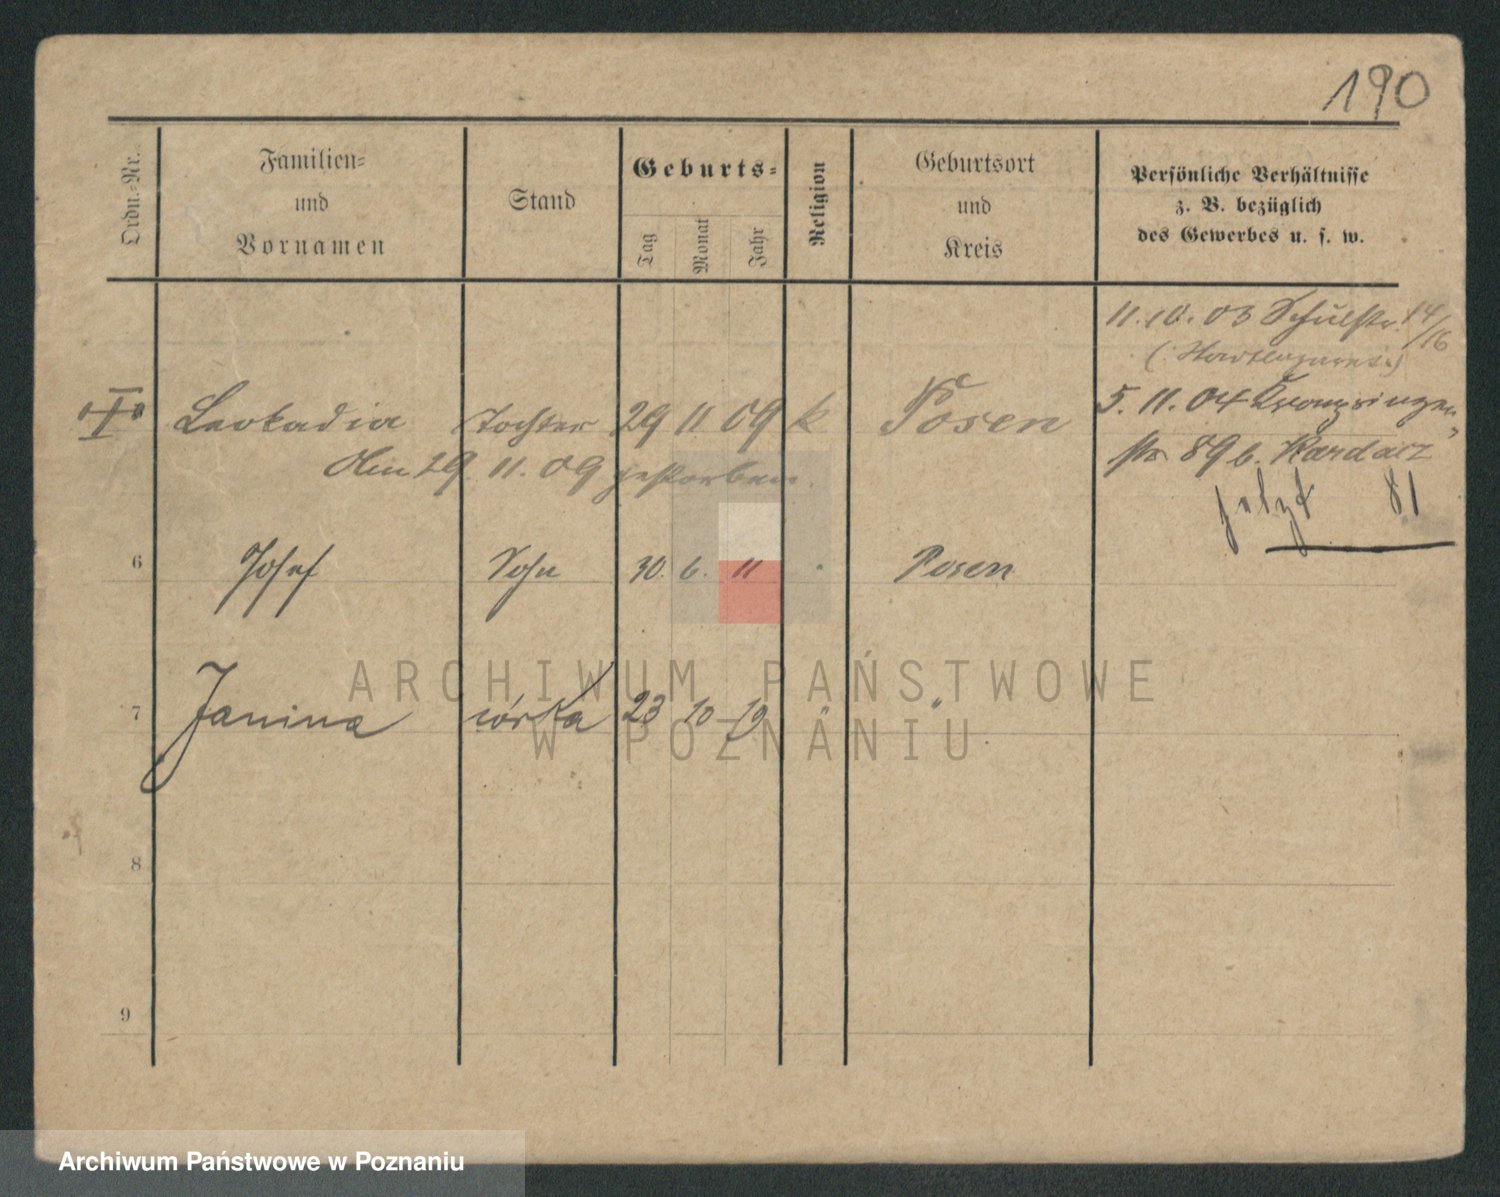 190
Ordn.-Nr.
Familien-
und
Vornamen
Stand
Geburts-
Tag
Monat
Jahr
Religion
Geburtsort
und
Kreis
Persönliche Verhältnisse
z. B. bezüglich
des Gewerbes u. s. w.
11.10.03 Schulstr. 14/16
Leokadia Tochter 29 11 09 k Posen
5.11.04 Kronprinzen
Am 29. 11. 09 gestorben.
str 89 b. Kardacz
jetzt 81
6 Josef Sohn 30. 6. 11 Posen
ARCHIWUM PAŃSTWOWE
7 Janina córka 23 10 19 " "
W POZNANIU
8
9
Archiwum Państwowe w Poznaniu